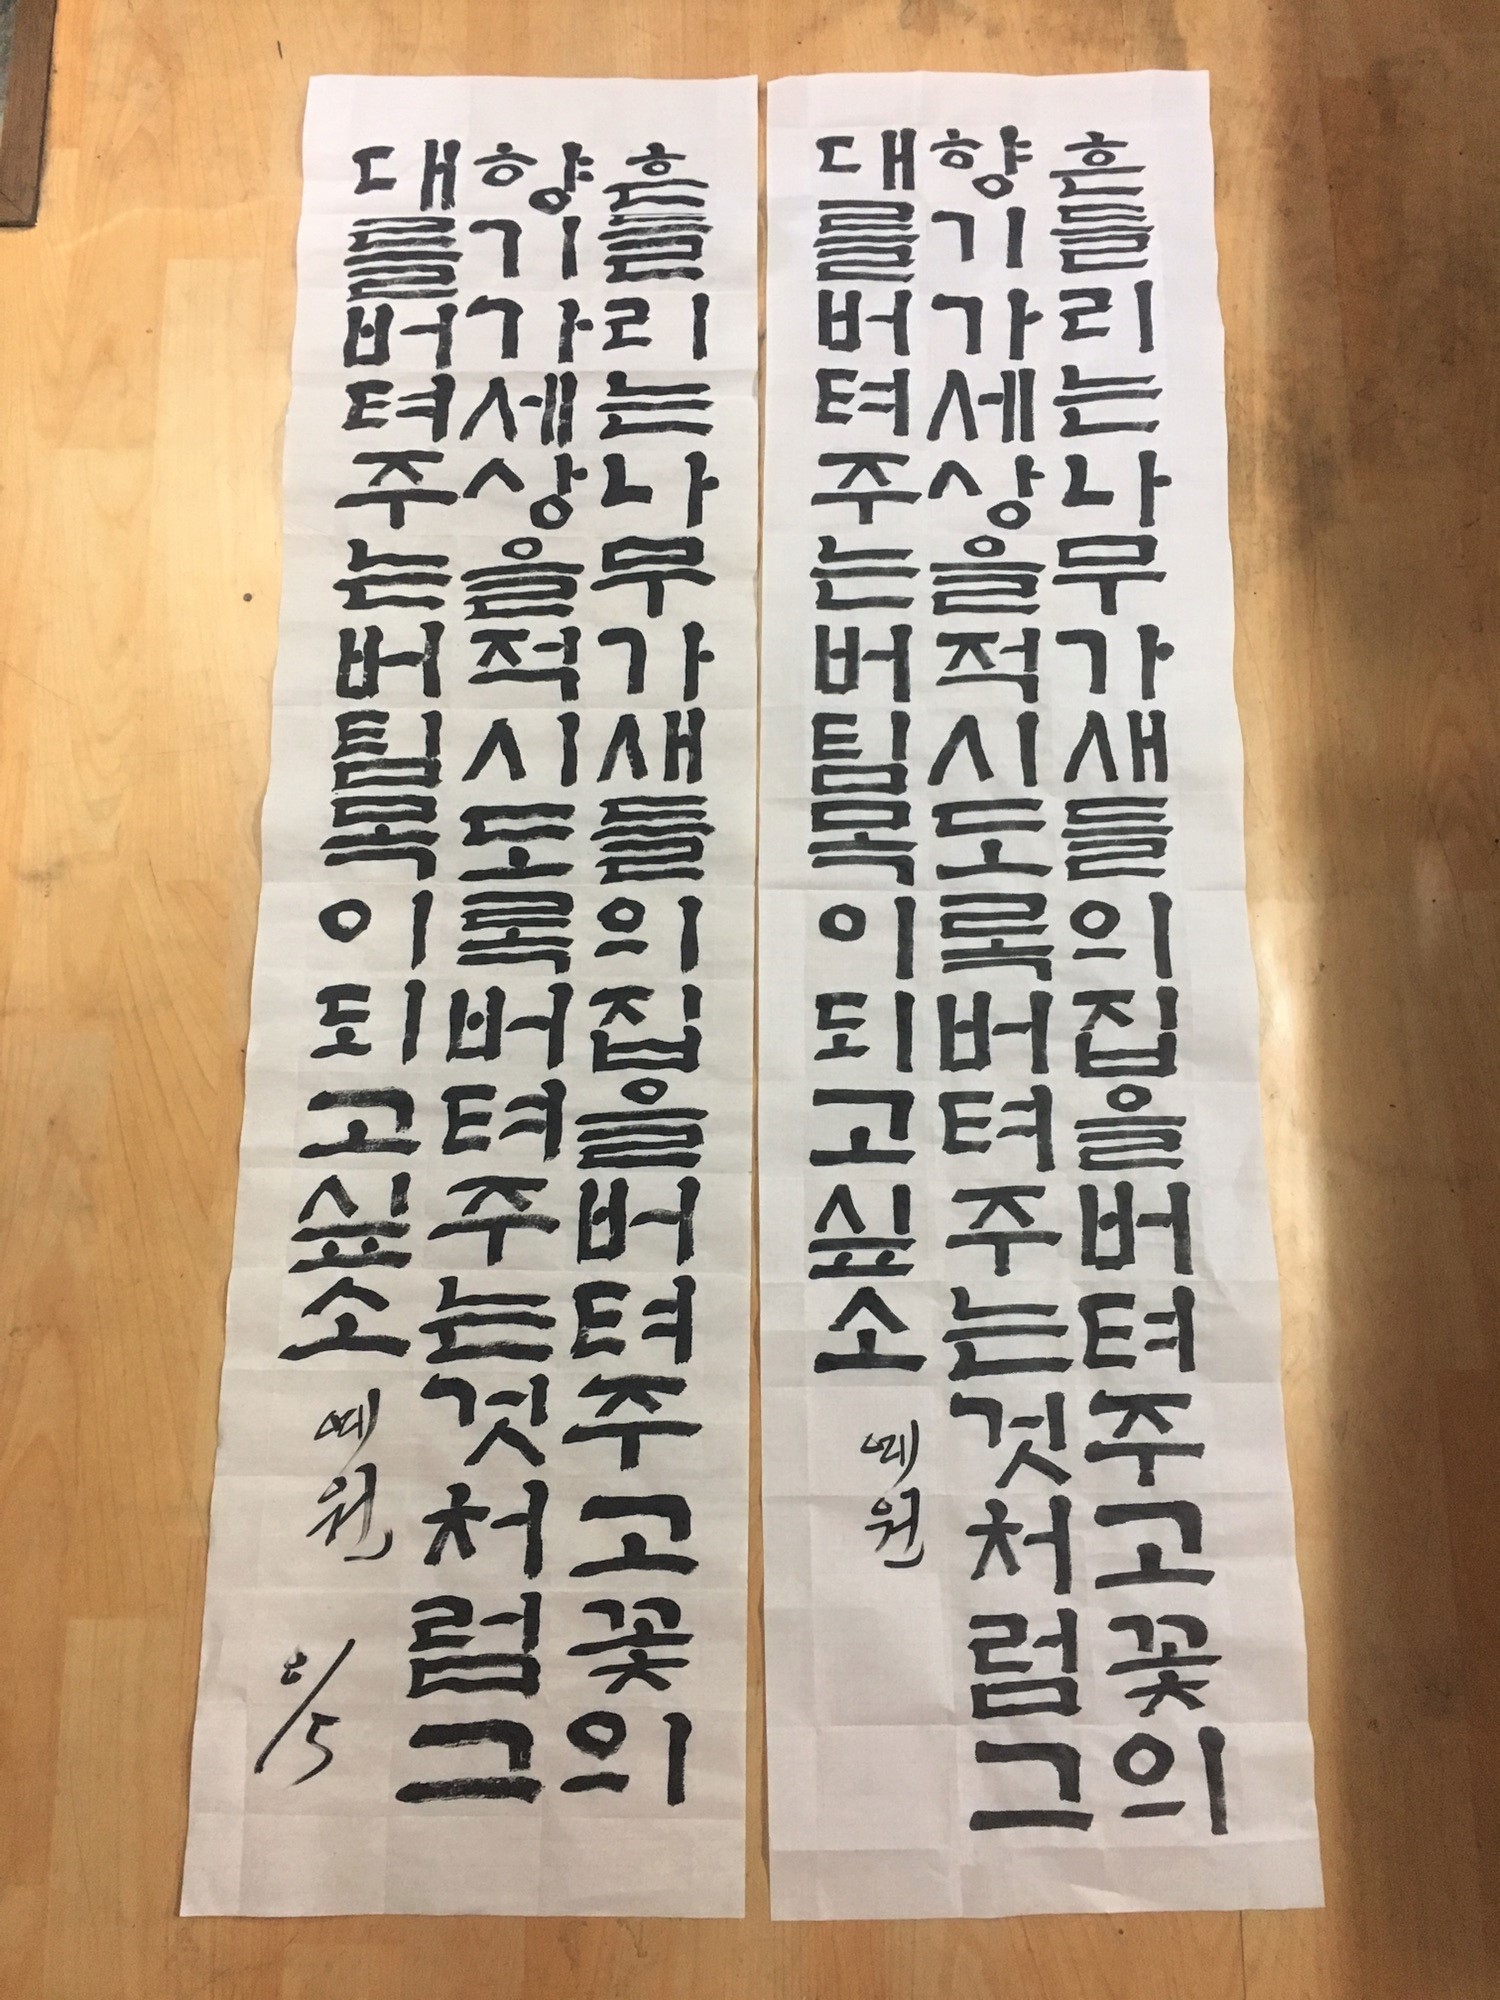 흔들리는나무가새들의집을버텨주고꽃의
향기가세상을적시도록버텨주는것처럼그
대를버텨주는버팀목이되고싶소
흔들리는나무가새들의집을버텨주고꽃의
향기가세상을적시도록버텨주는것처럼그
대를버텨주는버팀목이되고싶소